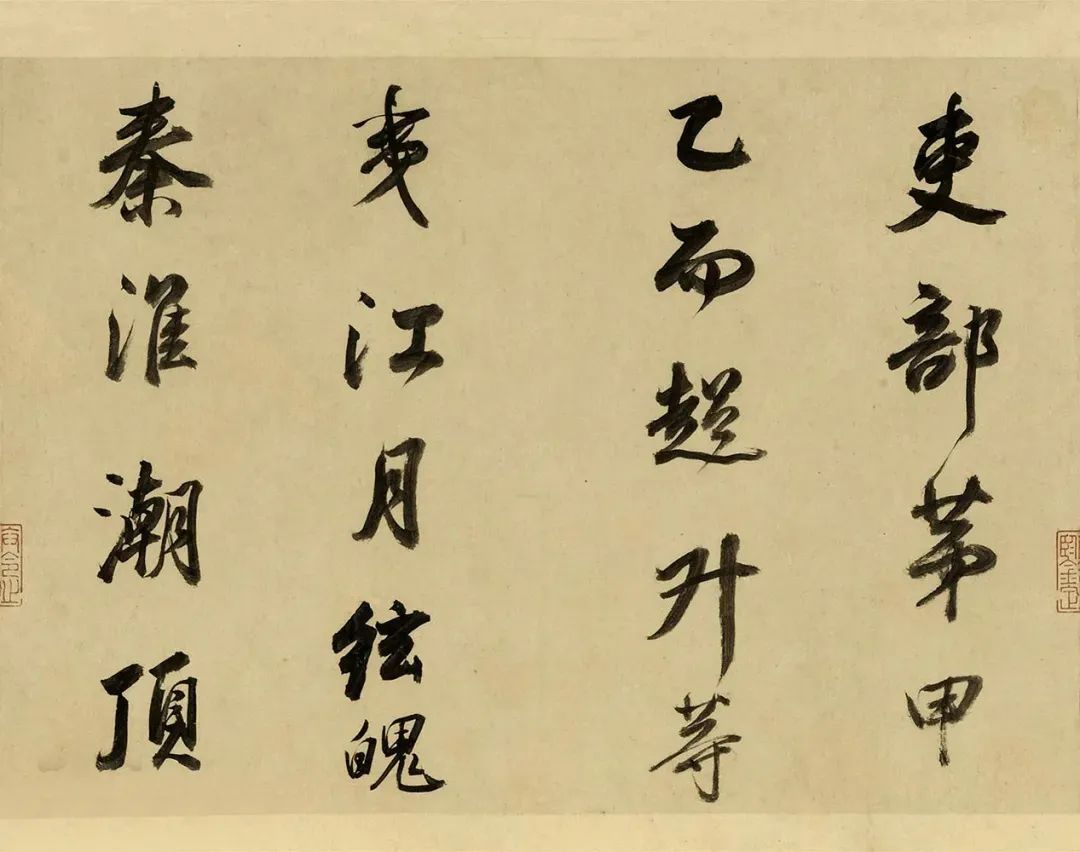 吏部第甲
乙而超升等
夷江月絃魄
秦淮潮頂